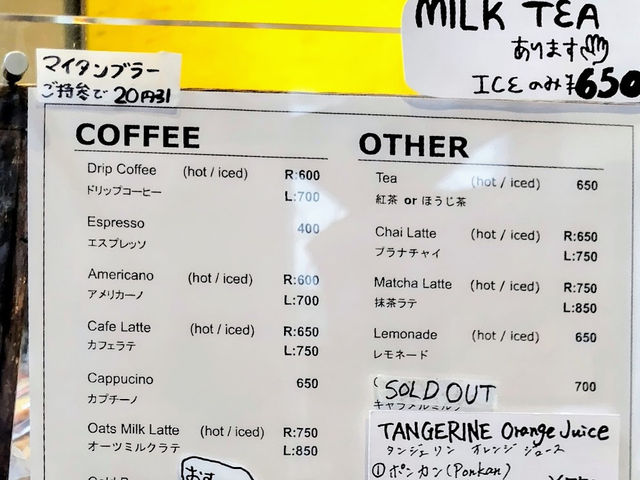 MILK TEA
あります
ICE のみ ¥650
マイタンブラー
ご持参で 20円引
COFFEE
Drip Coffee (hot / iced) R:600
ドリップコーヒー L:700
Espresso 400
エスプレッソ
Americano (hot / iced) R:600
アメリカーノ L:700
Cafe Latte (hot / iced) R:650
カフェラテ L:750
Cappucino 650
カプチーノ
Oats Milk Latte (hot / iced) R:750
オーツミルクラテ L:850
おす
OTHER
Tea (hot / iced) 650
紅茶 or ほうじ茶
Chai Latte (hot / iced) R:650
プラナチャイ L:750
Matcha Latte (hot / iced) R:750
抹茶ラテ L:850
Lemonade (hot / iced) 650
レモネード
SOLD OUT 700
TANGERINE Orange Juice
タンジェリン オレンジ ジュース
①ポンカン(Ponkan)